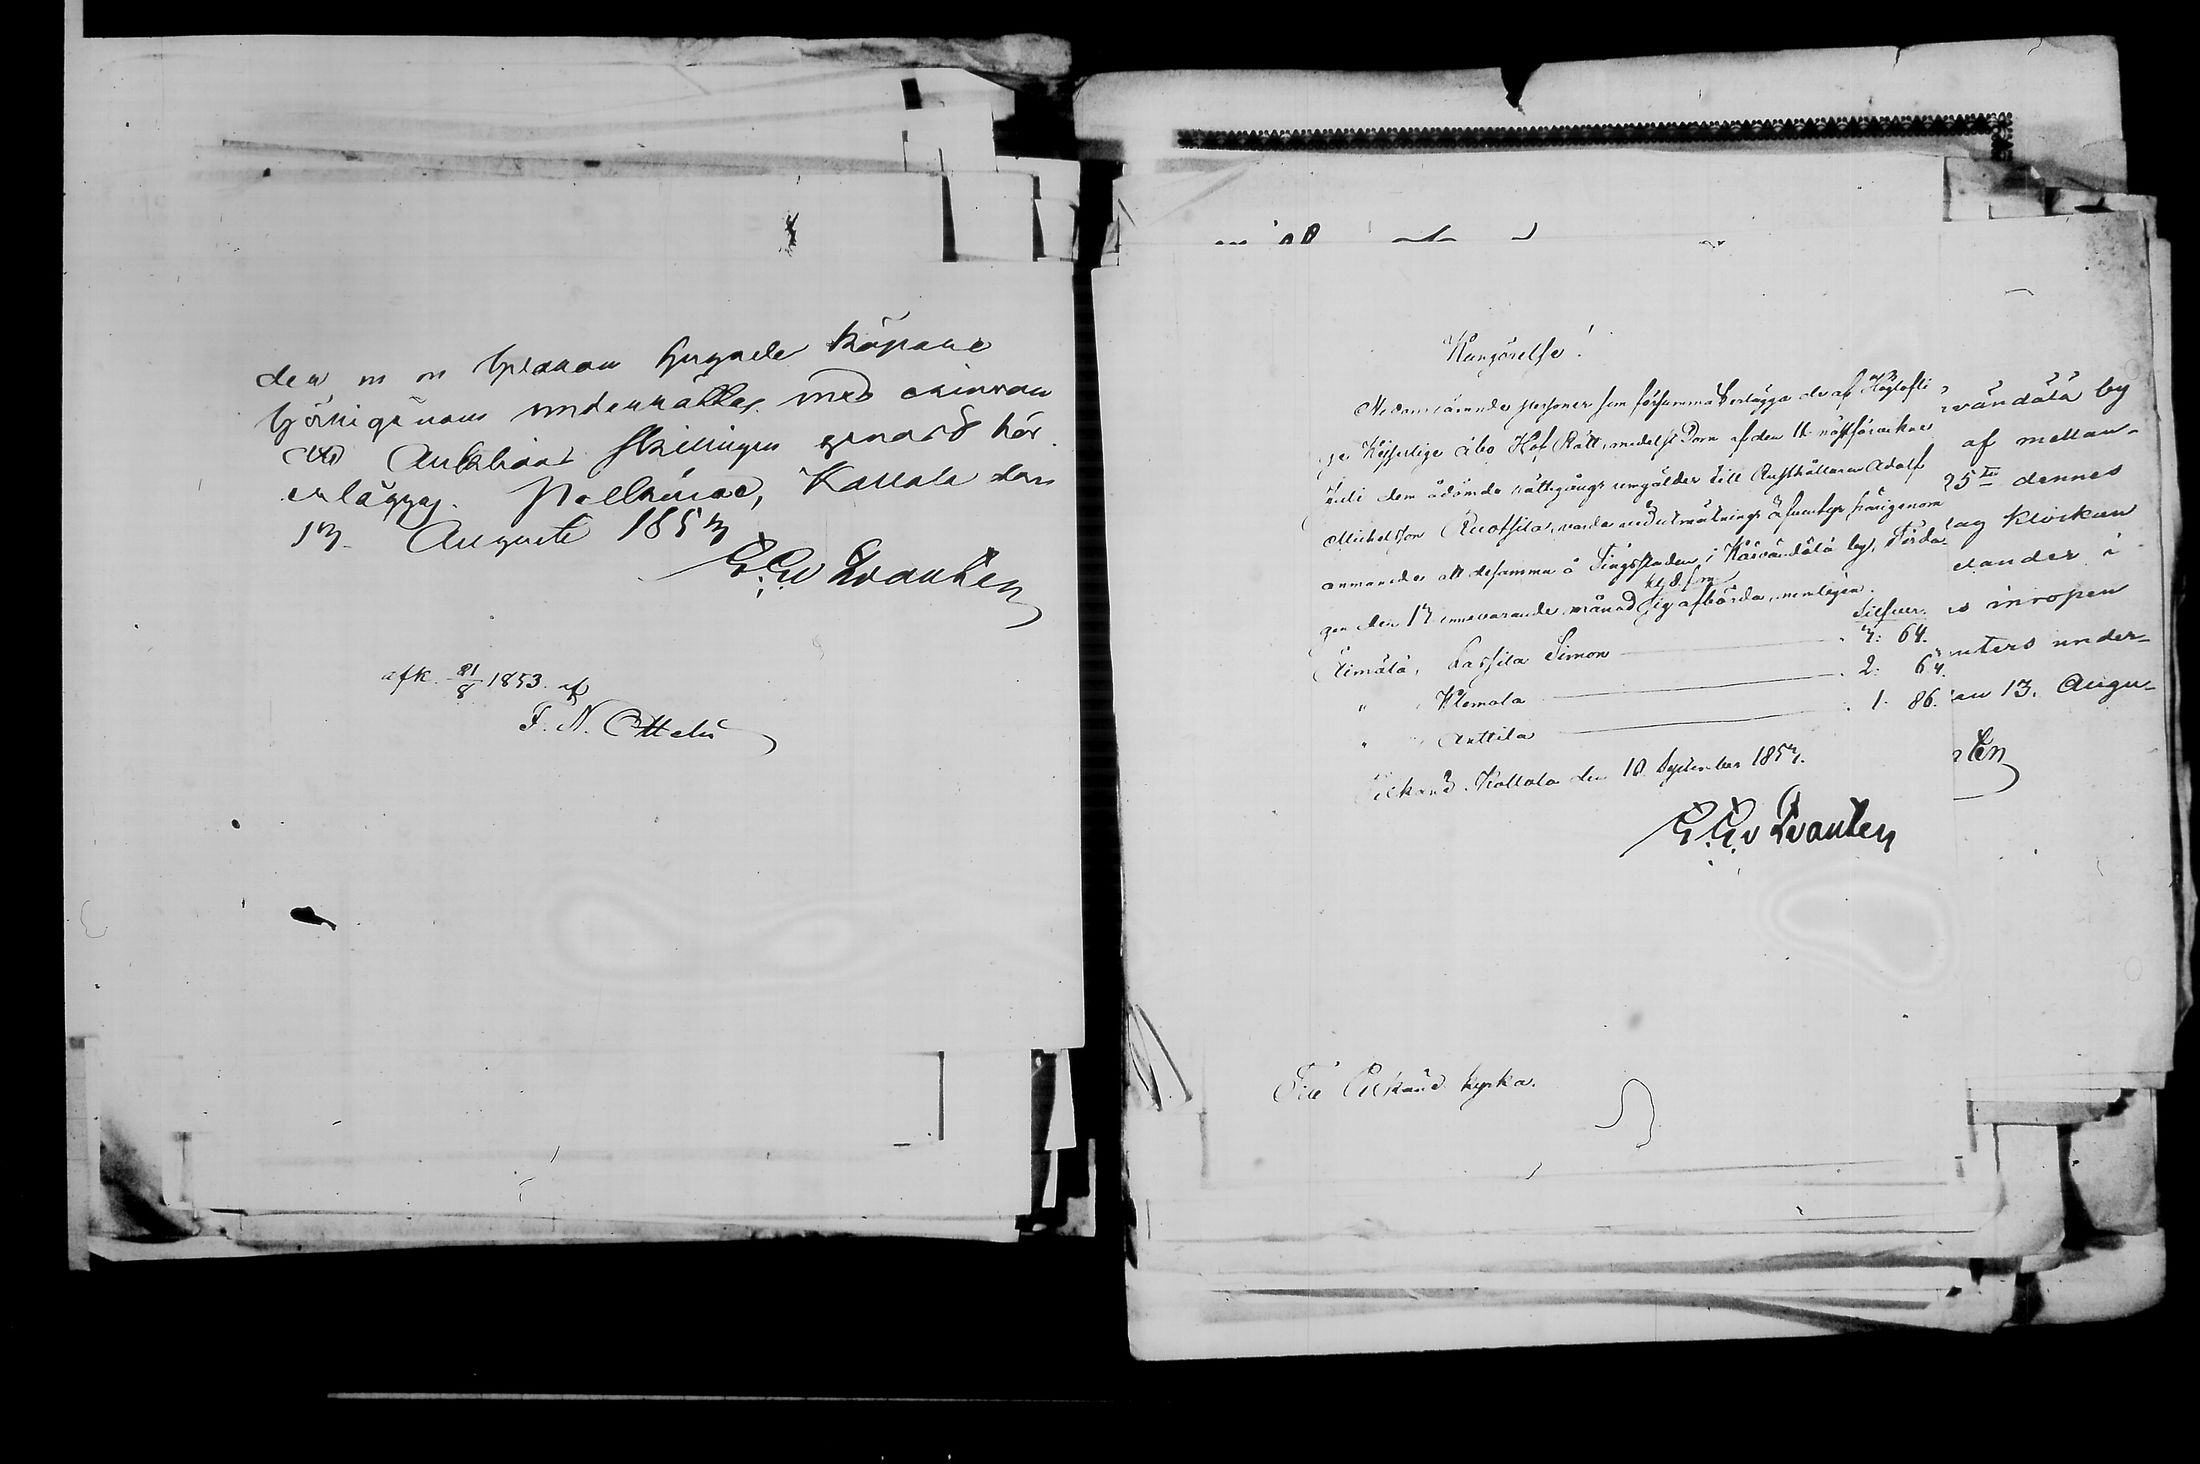 den m m hvarom hugade köpare
härigenom underrättas med anmodan
att Auktions skillingen genast bör
erläggas. Pelkäne, Kallala den
13 Augusti 1853
G. G. v Qvanten
afk. 21/8 1853 af
F. N. Ottelin
Kungörelse!
Nedannämnde personer som försumma erlägga de af Höglofli
ge Kejserlige Åbo Hof Rätt, medelst Dom af den 11 nästförvekne
Juli dem ådömde rättegångs umgälder till Rusthållaren Adolf
Michelsson Ruotsila, vid utmätnings äfventyr härigenom
anmanades att desamma å Tingsstaden i Kärväntälä by, Lörda
gen den 17 innevarande månad kl 8 f m sig afbörda, nemligen.
Silfver.
Äimälä, Lassila Simon 3: 64.
" Klemola 2: 64.
" Anttila 1. 86.
Pelkäne Kallala den 10 September 1853.
G. G. v Qvanten
Fill Pelkäne kyrka.
väntälä by
af mellan-
25te dennes
dag klockan
elander i
s inropen
uters under-
en 13. Augu-
ten